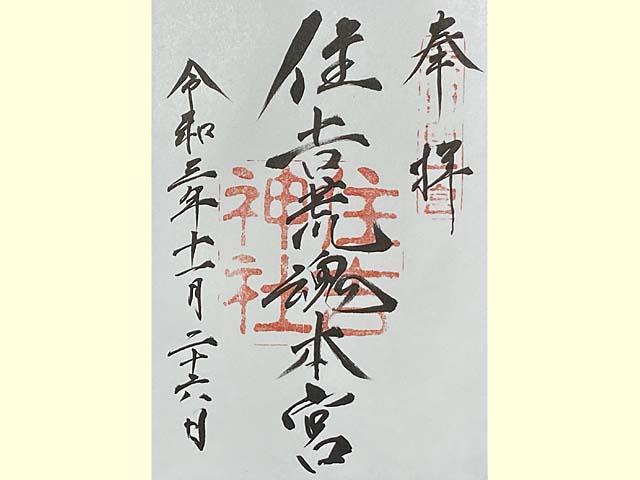 奉拝
住吉荒魂本宮
令和三年十一月二十六日
住吉
神社